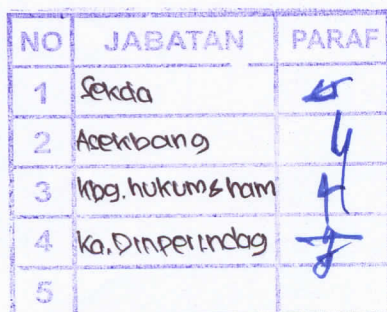 NO JABATAN PARAF
1 Sekda
2 Asekbang
3 Kbg. hukum & ham
4 Ka. Dinperindag
5